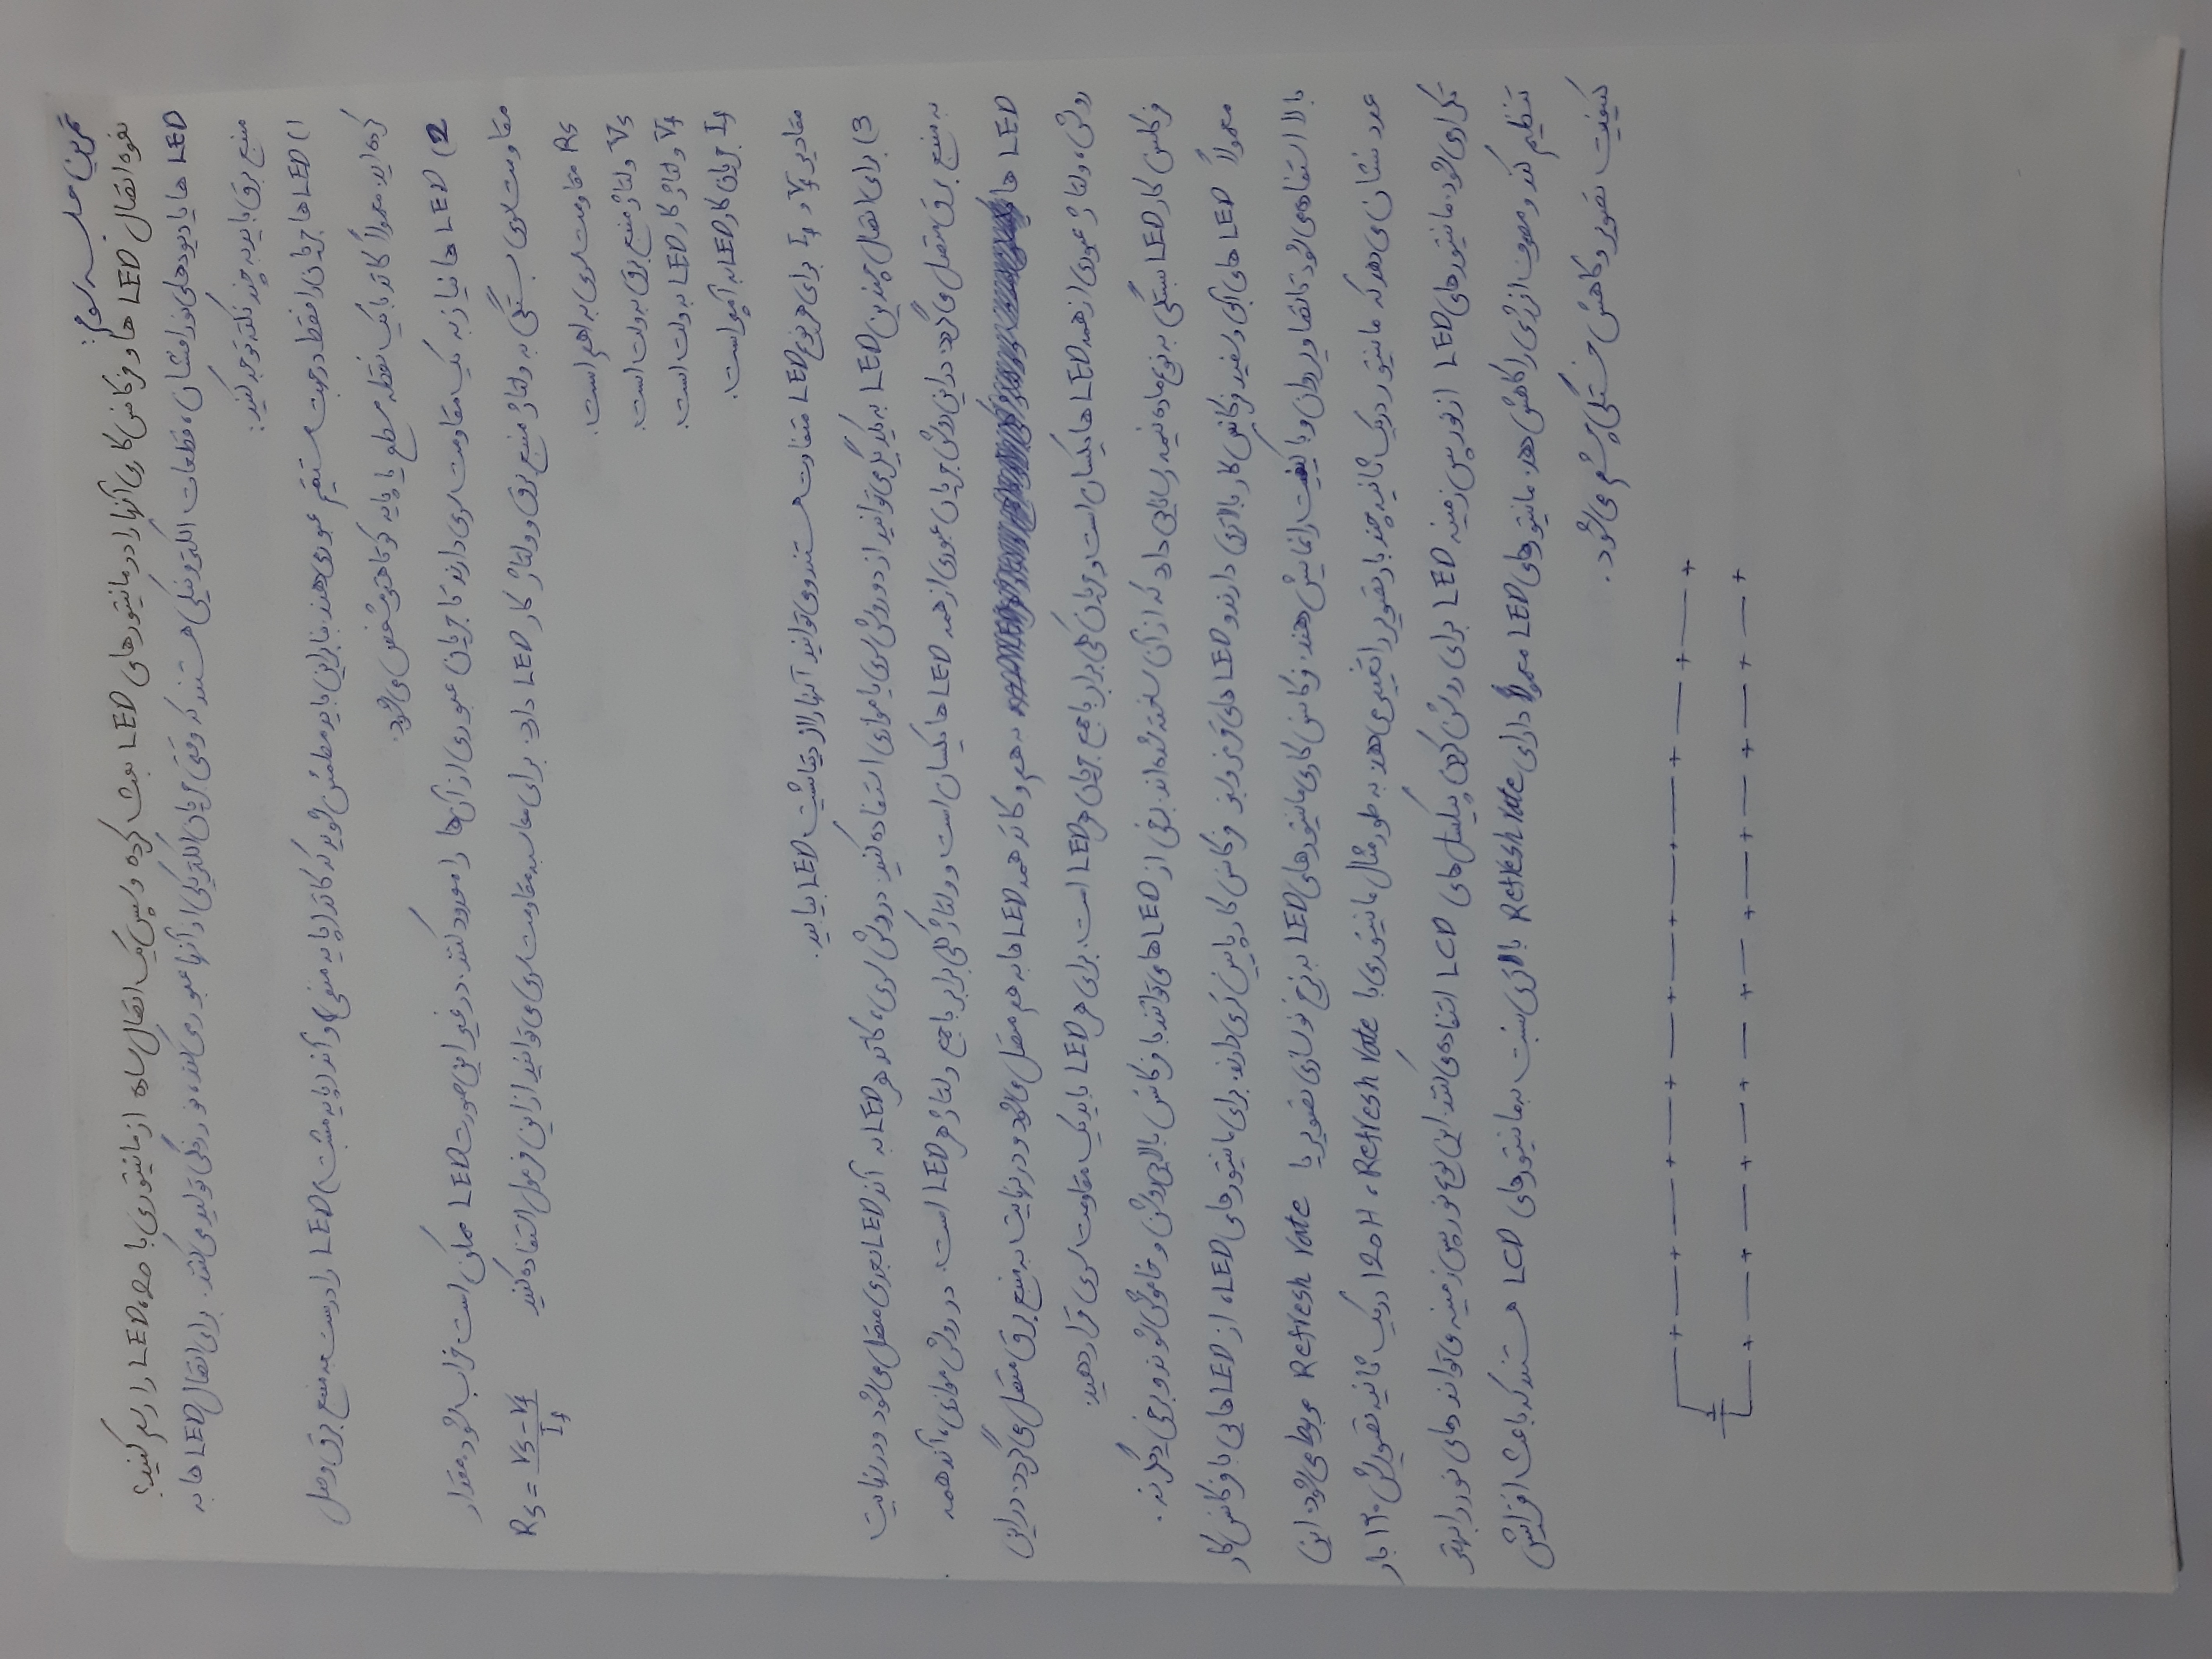 تمرین جلسه سوم:
نحوه اتصال LED ها و فرکانس کاری آنها را در مانیتورهای LED بحث کرده و سپس یک اتصال ساده از مانیتوری با 20، LED را رسم کنید؟
LED ها یا دیودهای نورافشان، قطعات الکترونیکی هستند که وقتی جریان الکتریکی از آنها عبور می‌کند، نور رنگی تولید می‌کنند. برای اتصال LED ها به
منبع برق باید به چند نکته توجه کنید:
1) LED ها جریان را فقط در جهت مستقیم عبور می‌دهند. بنابراین باید مطمئن شوید که کاتد (پایه منفی) و آند (پایه مثبت) LED را درست به منبع برق وصل
کرده اید. معمولاً کاتد با یک نقطه مسطح یا پایه کوتاهتر مشخص می‌شود.
2) LED ها نیاز به یک مقاومت سری دارند تا جریان عبوری از آن‌ها را محدود کنند. در غیر این صورت LED ممکن است خراب شود. مقدار
مقاومت سری بستگی به ولتاژ منبع برق و ولتاژ کار LED دارد. برای محاسبه مقاومت سری می‌توانید از این فرمول استفاده کنید Rs = (Vs - Vf) / If
Rs مقاومت سری به اهم است.
Vs ولتاژ منبع برق به ولت است.
Vf ولتاژ کار LED به ولت است.
If جریان کار LED به آمپر است.
مقادیر Vf و If برای هر نوع LED متفاوت هستند و می‌توانید آنها را از دیتاشیت LED بیابید.
3) برای اتصال چندین LED به یکدیگر می‌توانید از دو روش سری یا موازی استفاده کنید. در روش سری، کاتد هر LED به آند LED بعدی متصل می‌شود و در نهایت
به منبع برق متصل می‌گردد. در این روش جریان عبوری از همه LED ها یکسان است و ولتاژ کلی برابر با جمع ولتاژ هر LED است. در روش موازی، آند همه
LED ها به هم و کاتد همه LED ها به هم متصل می‌شود و در نهایت به منبع برق متصل می‌گردد. در این
روش، ولتاژ عبوری از همه LED ها یکسان است و جریان کلی برابر با جمع جریان هر LED است. برای هر LED باید یک مقاومت سری قرار دهید.
فرکانس کار LED بستگی به نوع ماده نیمه رسانایی دارد که از آن ساخته شده اند. برخی از LED ها می‌توانند با فرکانس بالایی روشن و خاموش شوند و برخی دیگر نه.
معمولاً LED های آبی و سفید فرکانس کار بالاتری دارند و LED های قرمز و سبز فرکانس کار پایین تری دارند. برای مانیتورهای LED، از LED هایی با فرکانس کار
بالا استفاده می‌شود تا تصاویر روان و با کیفیت را نمایش دهند. فرکانس کاری مانیتورهای LED به نرخ نوسازی تصویر یا Refresh rate مربوط می‌شود. این
عدد نشان می‌دهد که مانیتور در یک ثانیه چند بار تصویر را تغییر می‌دهد. به طور مثال مانیتوری با Refresh rate، 120H در یک ثانیه تصویرش ۱۲۰ بار
تکرار می‌شود. مانیتورهای LED از نور پس زمینه LED برای روشن کردن پیکسل های LCD استفاده می‌کنند. این نوع نور پس زمینه می‌تواند دمای نور را بهتر
تنظیم کند و مصرف انرژی را کاهش دهد. مانیتورهای LED معمولا دارای Refresh rate بالاتری نسبت به مانیتورهای LCD هستند که باعث افزایش
کیفیت تصویر و کاهش خستگی چشم می‌شود.
+ — + — + — + — + — + — + — + — + — +
+ — + — + — + — + — + — + — + — + — +